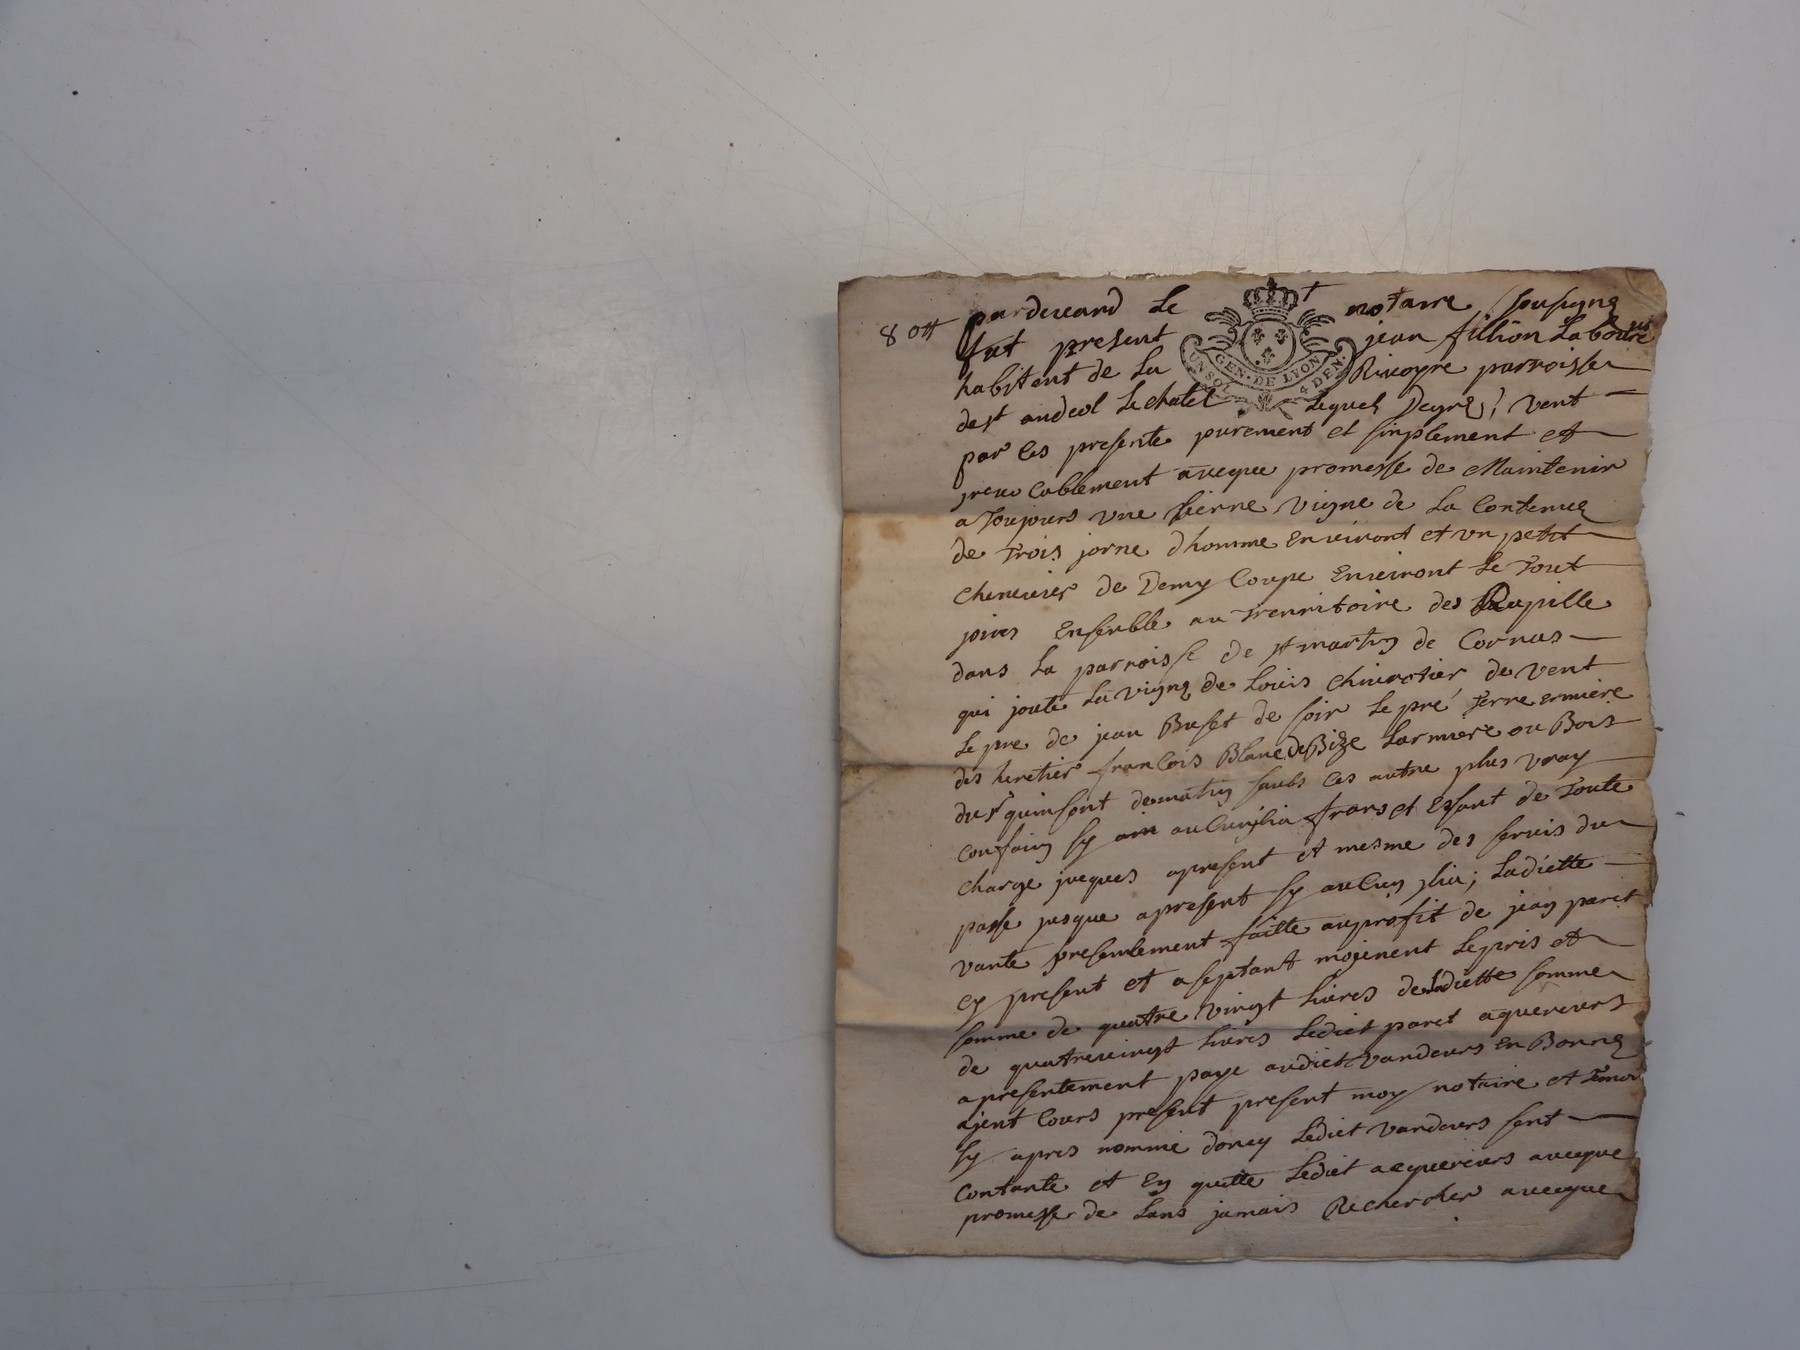 80tt
pardevand Le notaire sousigne
fut present jean fillion Laboure
UN SOL GEN. DE LYON 4 DEN.
habitant de La Rivoyre parroisse
de st andeol Lechatel Lequel Degre vent
par Ces presente purement et sinplement et
jrevo Cablement avecque promesse de Maintenir
a Toujours vne sienne vigne de La Contenue
de Trois jorne dhomme Enveiront et vn petit
Chenevier de Demy Coupe Enveiront Le Tout
joins Ensenble au Trerritoire des Roupille
dans La parroisse de st martin de Cornas
qui joute La vigne de Louis Chivrotier de vent
Le pre de jean Buset de soir Le pré Terre ermiere
des heretier francois Blanc de Bize Larmiere ou Bois
du sr quinsont dematin saubs Ces autre plus vray
Confain sy ain au Cunylia frans et Exsant de Toute
Charge jucques apresent et mesme des servis du
passe jusque apresent sy au Cuny lia; Ladiette
vante presentement faitte auprofit de jean paret
Cy present et aseptant mojenent Lepris et
somme de quatre vingt Livres de Ladiette somme
de quatreveingt Livres Lediet paret aquereurs
apresentement paye audiet vandeurs En Bonne
arjent Cours present present moy notaire et Temoi
sy apres nomme doncy Lediet vandeurs sent
Contante et En quitte Lediet acquereurs avecque
promesse de Lans jamais Rechercher avecque